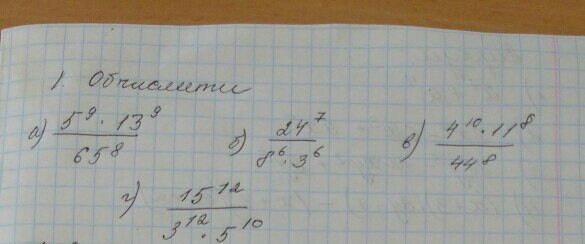 1. Обчислити
а) 5⁹·13⁹/65⁸ б) 24⁷/8⁶·3⁶ в) 4¹⁰·11⁸/44⁸
г) 15¹²/3¹²·5¹⁰